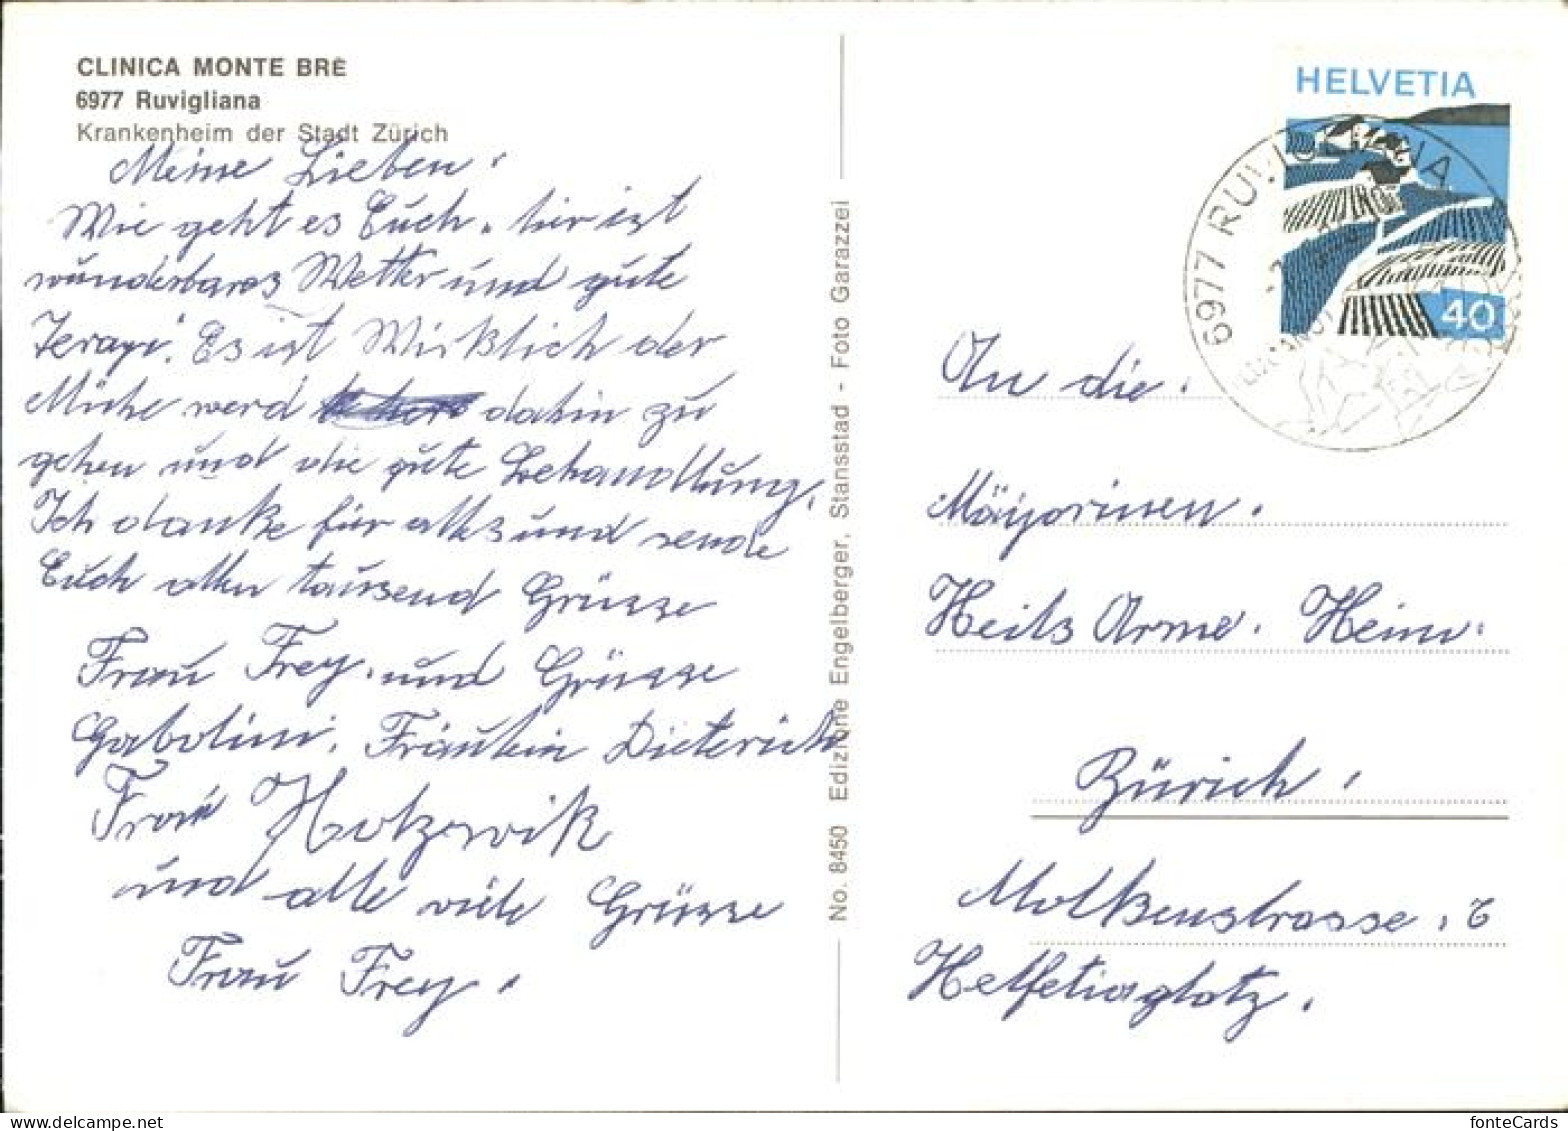 CLINICA MONTE BRÈ
6977 Ruvigliana
Krankenheim der Stadt Zürich
Meine Lieben,
Wie geht es Euch, hir ist
wunderbares Wetter und gute
Terapi. Es ist Wirklich der
Mühe werd dahin zu
gehen und die gute Behandlung.
Ich danke für alles und sende
Euch allen tausend Grüsse
Frau Frey, und Grüsse
Gabolini, Fräulein Dieterich
Frau
und alle viele Grüsse
Frau Frey,
No. 8450 Edizione Engelberger, Stansstad - Foto Garazzei
HELVETIA
40
6977 RUVIGLIANA
An die
Mäijorinen.
Heils Arme. Heim.
Zürich,
Molkenstrasse,
Helfetiaplatz.
fonteCards